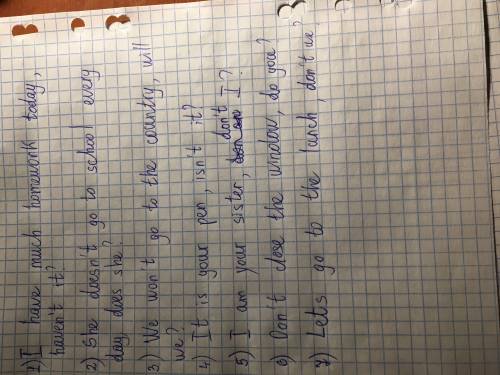 1) I have much homework today,
haven't it?
2) She doesn't go to school every
day, does she?
3) We won't go to the country, will
we?
4) It is your pen, isn't it?
5) I am your sister, don't I?
6) Don't close the window, do you?
7) Lets go to the lunch, don't we?